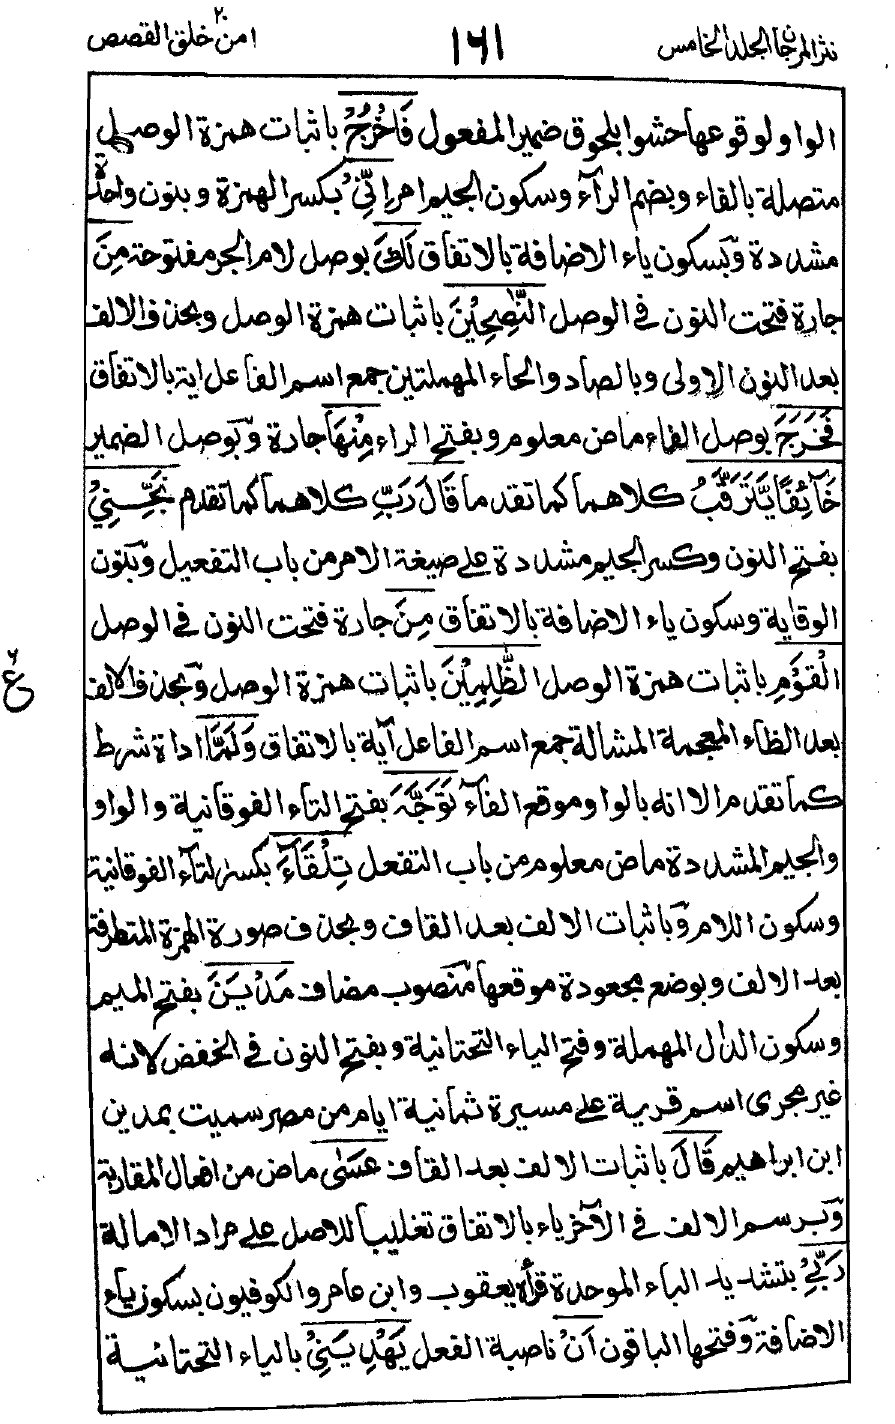 نثر المرجان الجلد الخامس ١٦١ امن خلق ٢٠ القصص
الواو لوقوعها حشوا بلحوق ضمير المفعول فَاخْرُجْ باثبات همزة الوصل
متصلة بالفاء وبضم الرآء وسكون الجيم امر اِنِّيْ بكسر الهمزة وبنون واحدة
مشددة وبسكون ياء الاضافة بالاتفاق لَكَ بوصل لام الجر مفتوحة مِنَ
جارة فتحت النون في الوصل النّٰصِحِيْنَ باثبات همزة الوصل وبحذف الالف
بعد النون الاولى وبالصاد والحاء المهملتين جمع اسم الفاعل اية بالاتفاق
فَخَرَجَ بوصل الفاء ماض معلوم وبفتح الراء مِنْهَا جارة وبوصل الضمير
خَآئِفًا يَّتَرَقَّبُ كلاهما كما تقدم ما قَالَ رَبِّ كلاهما كما تقدم نَجِّنِيْ
بفتح النون وكسر الجيم مشددة على صيغة الامر من باب التفعيل وبنون
الوقاية وسكون ياء الاضافة بالاتفاق مِنَ جارة فتحت النون في الوصل
الْقَوْمِ باثبات همزة الوصل الظّٰلِمِيْنَ باثبات همزة الوصل وبحذف الالف
بعد الظاء المعجمة المشالة جمع اسم الفاعل آية بالاتفاق وَلَمَّا اداة شرط
كما تقدم الا انه بالواو موقع الفآء تَوَجَّهَ بفتح التاء الفوقانية والواو
والجيم المشددة ماض معلوم من باب التفعل تِلْقَآءَ بكسر التآء الفوقانية
وسكون اللام وباثبات الالف بعد القاف وبحذف صورة الهمزة المتطرفة
بعد الالف وبوضع مجعودة موقعها منصوب مضاف مَدْيَنَ بفتح الميم
وسكون الدال المهملة وفتح الياء التحتانية وبفتح النون في الخفض لانه
غير مجرى اسم قرية على مسيرة ثمانية ايام من مصر سميت بمدين
ابن ابراهيم قَالَ باثبات الالف بعد القاف عَسٰى ماض من افعال المقاربة
وبرسم الالف في الآخر ياء بالاتفاق تغليبا للاصل على مراد الامالة
رَبِّيْ بتشديد الباء الموحدة قرأه يعقوب وابن عامر والكوفيون بسكون ياء
الاضافة وفتحها الباقون اَنْ ناصبة الفعل يَهْدِيَنِيْ بالياء التحتانية
ع